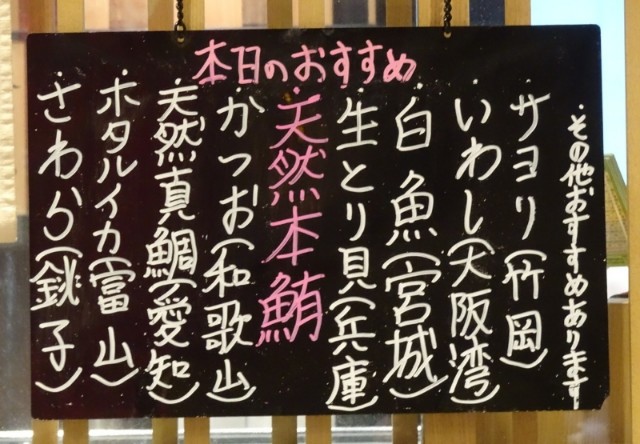 本日のおすすめ
その他おすすめあります！
・サヨリ（竹岡）
・いわし（大阪湾）
・白魚（宮城）
・生とり貝（兵庫）
・天然本鮪
・かつお（和歌山）
・天然真鯛（愛知）
・ホタルイカ（富山）
・さわら（銚子）